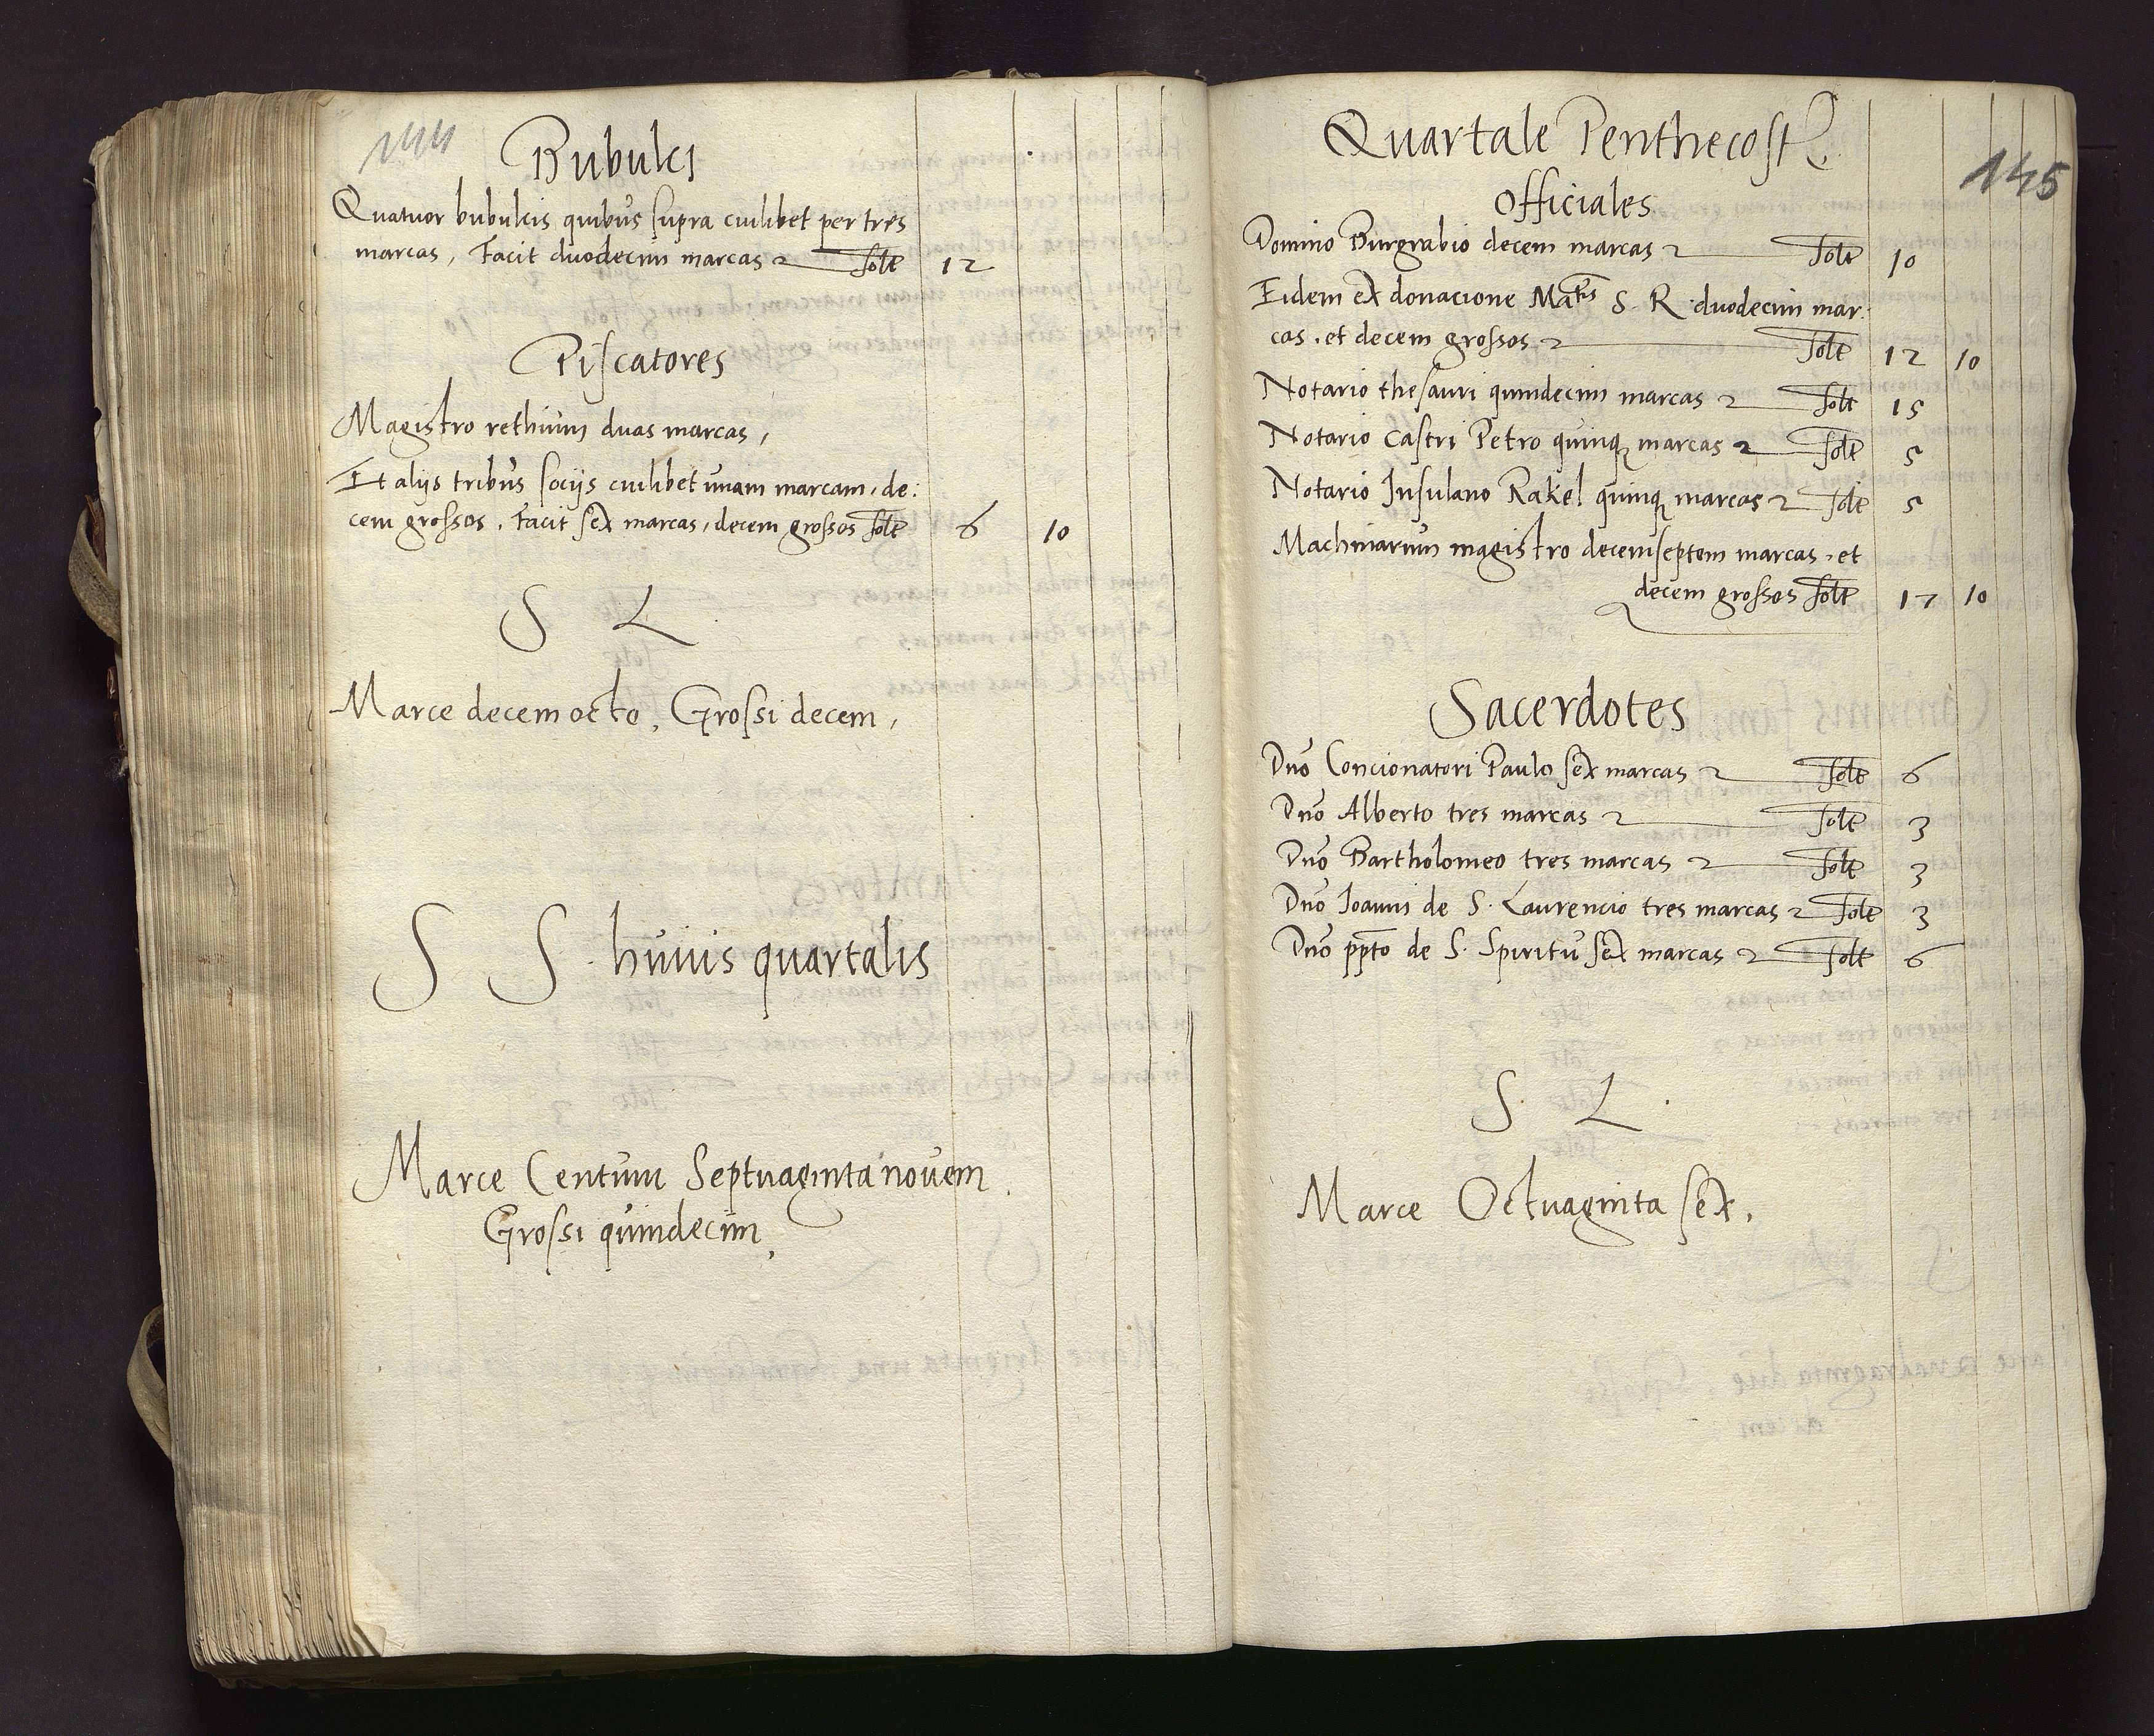 144
Bubulci
Quatuor bubulcis quibus supra cuilibet per tres
marcas, Facit duodecim marcas Solt 12
Piscatores
Magistro rethium duas marcas,
Et alijs tribus socijs cuilibet unam marcam, de:
cem grossos, Facit sex marcas, decem grossos Solt 6 10
S L
Marce decem octo, Grossi decem,
S S huius quartalis
Marce Centum Septuaginta nouem
Grossi quindecim,
145
Quartale Penthecost
Officiales
Domino Burgrabio decem marcas Solt 10
Eidem ex donacione Matis S. R. duodecim mar:
cas, et decem grossos Solt 12 10
Notario thesauri quindecim marcas Solt 15
Notario Castri Petro quinq marcas Solt 5
Notario Insulano Rakel quinq marcas Solt 5
Machinarum magistro decemseptem marcas, et
decem grossos Solt 17 10
Sacerdotes
Dno Concionatori Paulo sex marcas Solt 6
Dno Alberto tres marcas Solt 3
Dno Bartholomeo tres marcas Solt 3
Dno Ioanni de S. Laurencio tres marcas Solt 3
Dno ppto de S. Spiritu sex marcas Solt 6
S. L.
Marce Octuaginta sex,